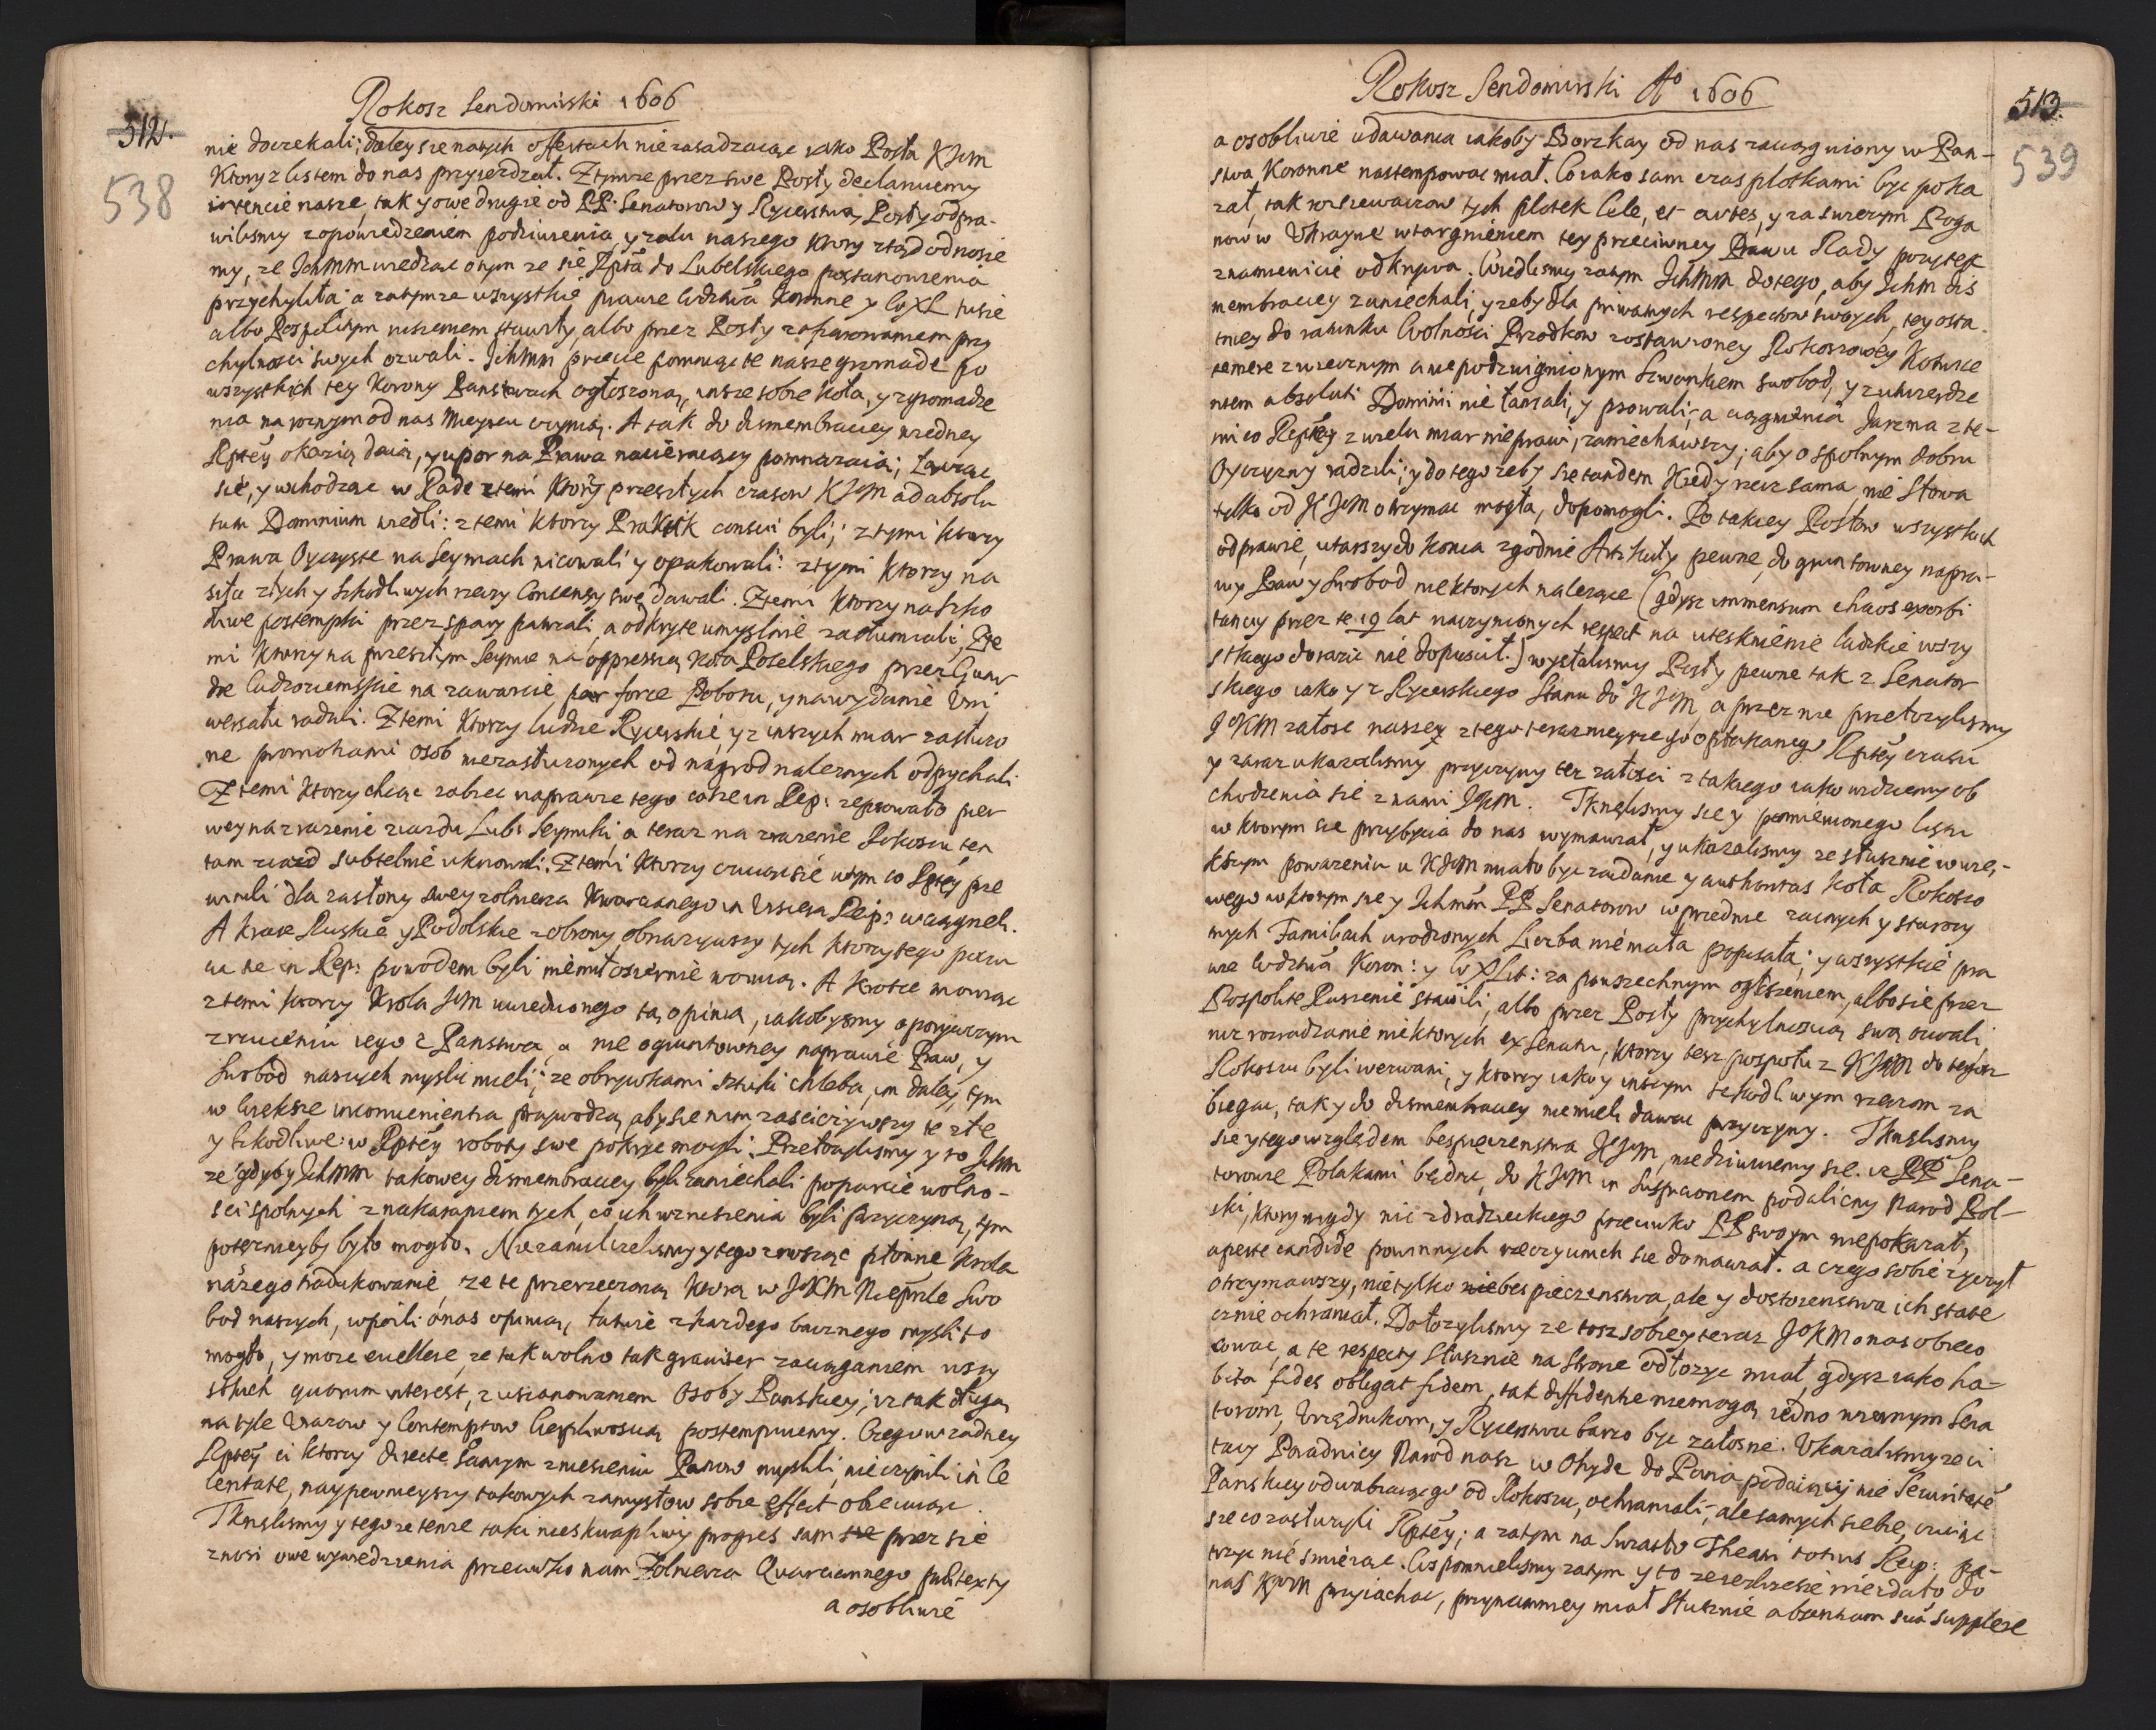 Rokosz Sendomirski 1606
512.
538
nie doczekali; daley sie na tych offertach nie zasadzaiąc iako Posła KJM
Ktory z listem do nas przyiezdzał. Z tymze przez swe Posły declaruiemy
intencie nasze, tak y owe drugie od PP. Senatorow y Rycerstwa, Posły odpra-
wilismy z opowiedzeniem podziwienia y zalu naszego ktory ztąd odnosie
my, ze Ichmm wiedząc o tym ze sie Rpta do Lubelskiego postanowienia
przychyliła: a zatym ze wszystkie prawie Wdztwa Koronne y WXL tusie
albo Pospolitym ruszeniem stawiły, albo przez Posły z ofiarowaniem przy
chylnosci swych ozwali. Ichmm przecie pomniąc te nasze gromade po
wszystkich tey Korony Panstwach ogłoszoną, insze sobie Koła, y zgromadze
nia na roznym od nas mieyscu czynią. A tak do dismembraciey wiedney
Rptey okazią daią, y upor na Prawa nacieraiący pomnazaią; łącząc
sie, y wchodząc w Rade z temi ktorzy przeszłych czasow KJM ad absolu
tum Dominium wiedli: z temi ktorzy Praktik conscii byli; z tymi ktorzy
Prawa Oyczyste na Seymach nicowali y opakowali: z tymi ktorzy na
siła złych y szkodliwych rzeczy Consensy swe dawali. Z temi ktorzy na szko
dliwe postempki przez spary patrzali, a odkryte umyslnie zatłumiali, Zte
mi ktorzy na przeszłym Seymie na oppressią Koła Poselskiego przez Gwar
die Cudzoziemskie na zawarcie par force Poboru, y na wydanie Uni
wersału radzili. Z temi ktorzy ludzie Rycerskie, y z inszych miar zasłuzo
ne promotiami osob niezasłuzonych od nagrod naleznych odpychali
Z temi ktorzy chcąc zabiec naprawie tego co sie in Rep: zepsowało pier
wey na zrazenie ziazdu Lub: Seymiki, a teraz na zrazenie Rokoszu ten
tam ziazd subtelnie uknowali. Z temi ktorzy czuiąc sie w tym co Rptey prze
winili dla zasłony swey zołnierza Kwarcianego in Viscera Reip: wciągneli.
A kraie Ruskie y Podolskie z obrony obnazywszy tych ktorzy tego
in Rep: powodem byli niemiłosiernie wo A krotce mowiąc
z temi ktorzy Krola JM uwiedzionego tą opinią, iakobysmy o porywczym
zrzuceniu iego z Panstwa, a nie o gruntowney naprawie Praw, y
Swobod naszych myslic mieli; ze obrywkami sztuki chleba, im daley, tym
w wieksze inconuenientia przywodzą, aby sie nim zasciciywszy te złe
y szkodliwe w Rptey roboty swe pokryc mogli. Przełozylismy y to Ichm
ze gdyby Ichmm takowey dismembraciey byli zaniechali poparcie wolno-
sci spolnych z nakaraniem tych, co ich wzruszenia byli przyczyną, tym
potezniey by było mogło. Niezamilczelismy y tego znosząc płonne Krola
naszego tradukowanie, ze te przerzeczoną ktorą w JKM Nieprzle Swo
bod naszych, wpoili o nas opinią, łatwie z kazdego bacznego mysli to
mogło, y moze euellere, ze tak wolno tak grauiter zaciąganiem wszy
stkich quorum interest, z uszanowaniem Osoby Panskiey; iz tak długą
na tyle Urazow y Contemptow Cierpliwoscią postempuiemy. Czego w zadney
Rptey ci ktorzy directe samym zniesieniu Panow myslili, nie czynili in Ce
leritate, naypewnieyszy takowych zamysłow sobie effect obiecuiąc.
Tknelismy y tego ze tenze taki nieskwapliwy progres sam przez sie
znosi owe wywiedzienia przeciwko nam Zołnierza Quarciannego pretexty
a osobliwie
Rokosz Sendomirski Ao 1606
513.
539
a osobliwie udawania iakoby Boczkay od nas zaciągniony w Pan-
stwa Koronne nastempowac miał. Co iako sam czas plotkami byc poka
zał, tak rozsiewaczow tych plotek Cele, et artes, y za swiezym Poga
now w Ukraine wtargnieniem tey przeciwney Prawu Rady pozytek
znamienicie odkrywa. Wiedlismy zatym Ichmm do tego, aby Ichm dis
membraciey zaniechali, y zeby dla priwatnych respectow swoych, tey osta
tniey do ratunku Wolnosci Przodkow zostawioney Rokoszowey Kotwice
temere z wiecznym a niepodzwignionym Szwankiem swobod, y z utwierdze
niem absoluti Dominii nie łamali, y psowali; a ciągnienia Jarzma z te-
mi co Rptey z wielu miar nieprawi, zaniechawszy; aby o spolnym dobru
Oyczyzny radzili; y do tego zeby sie tandem kiedy rzecz sama, nie Słowa
tylko od KJM otrzymac mogła, dopomogli. Po takiey Posłow wszystkich
odprawie, utarszy do konca zgodnie Artikuły pewne, do gruntowney napra-
wy Praw y Swobod niektorych nalezące (gdysz immensum chaos exorbi
tanciy przez te 19 lat naczynionych respect na uteskniénie ludzkie wszy
stkiego dorazu nie dopuscił.) wysłalismy Posły pewne tak z Senator
skiego iako y z Rycerskiego Stanu do KJM, a przez nie przełozylismy
JKM załosc naszey z tego terazniejszego opłakanego Rptey czasu
y zaraz ukazalismy przyczyny tez załosci z takiego iako widziemy ob
chodzenia sie z nami JKM. Tknelismy sie y pomienionego listu
w ktorym sie przybycia do nas wymawiał, y ukazalismy ze słusznie w wie-
kszym powazeniu u KJM miało byc ządanie y authoritas Koła Rokoszo
wego w ktorym sie y Ichmm PP Senatorow w przednie zacnych y staroży
tnych Familiach urodzonych Liczba niemała popisała; y wszystkie pra
wie Wdztwa Koron: y WXLit: za powszechnym ogłoszeniem, albo sie przez
Pospolite Ruszenie stawili, albo przez Posły przychylnoscią swą ozwali
niz rozradzanie niektorych ex Senatu, ktorzy tesz pospołu z KJM do tegosz
Rokoszu byli wezwani, y ktorzy iako y inszym szkodliwym rzeczom za
biegac, tak y do dismembraciey niemieli dawac przyczyny. Tknelismy
sie y tego względem bespieczenstwa JKJM, niedziwuiemy sie. iz PP Sena-
torowie Polakami będąc, do KJM in suspicionem podali cny Narod Pol-
ski, ktory nigdy nic zdradzieckiego przeciwko PP swoym niepokazał,
aperte candide powinnych rzeczy u nich sie domawiał. a czego sobie zyczył
otrzymawszy, nietylko bespieczenstwa, ale y dostoienstwa ich state
cznie ochraniał. Dołozylismy ze tosz sobie y teraz JKM o nas obieco
wac, a te respecty słusznie na strone odłozyc miał, gdysz iako ha-
bita fides obligat fidem, tak diffidentie niemogą iedno wiernym Sena
torom, Urzędnikom, y Rycerstwu barzo byc załosne. Ukazalismy ze ci
tacy Poradnicy Narod nasz w Ohyde do Pana podaiący nie Securitatē
Panskiey odwabiaiącego od Rokoszu, ochraniali; ale samych siebie, czuiąc
sie co zasłuzyli Rptey; a zatym na swiatło Theatri totius Reip: pa-
trzyc nie smieiąc. Wspomnielismy zatym y to zeiezlize sie niezdało do
nas KJM przyiachac, przynamniey miał słusznie absentiam suā supplere